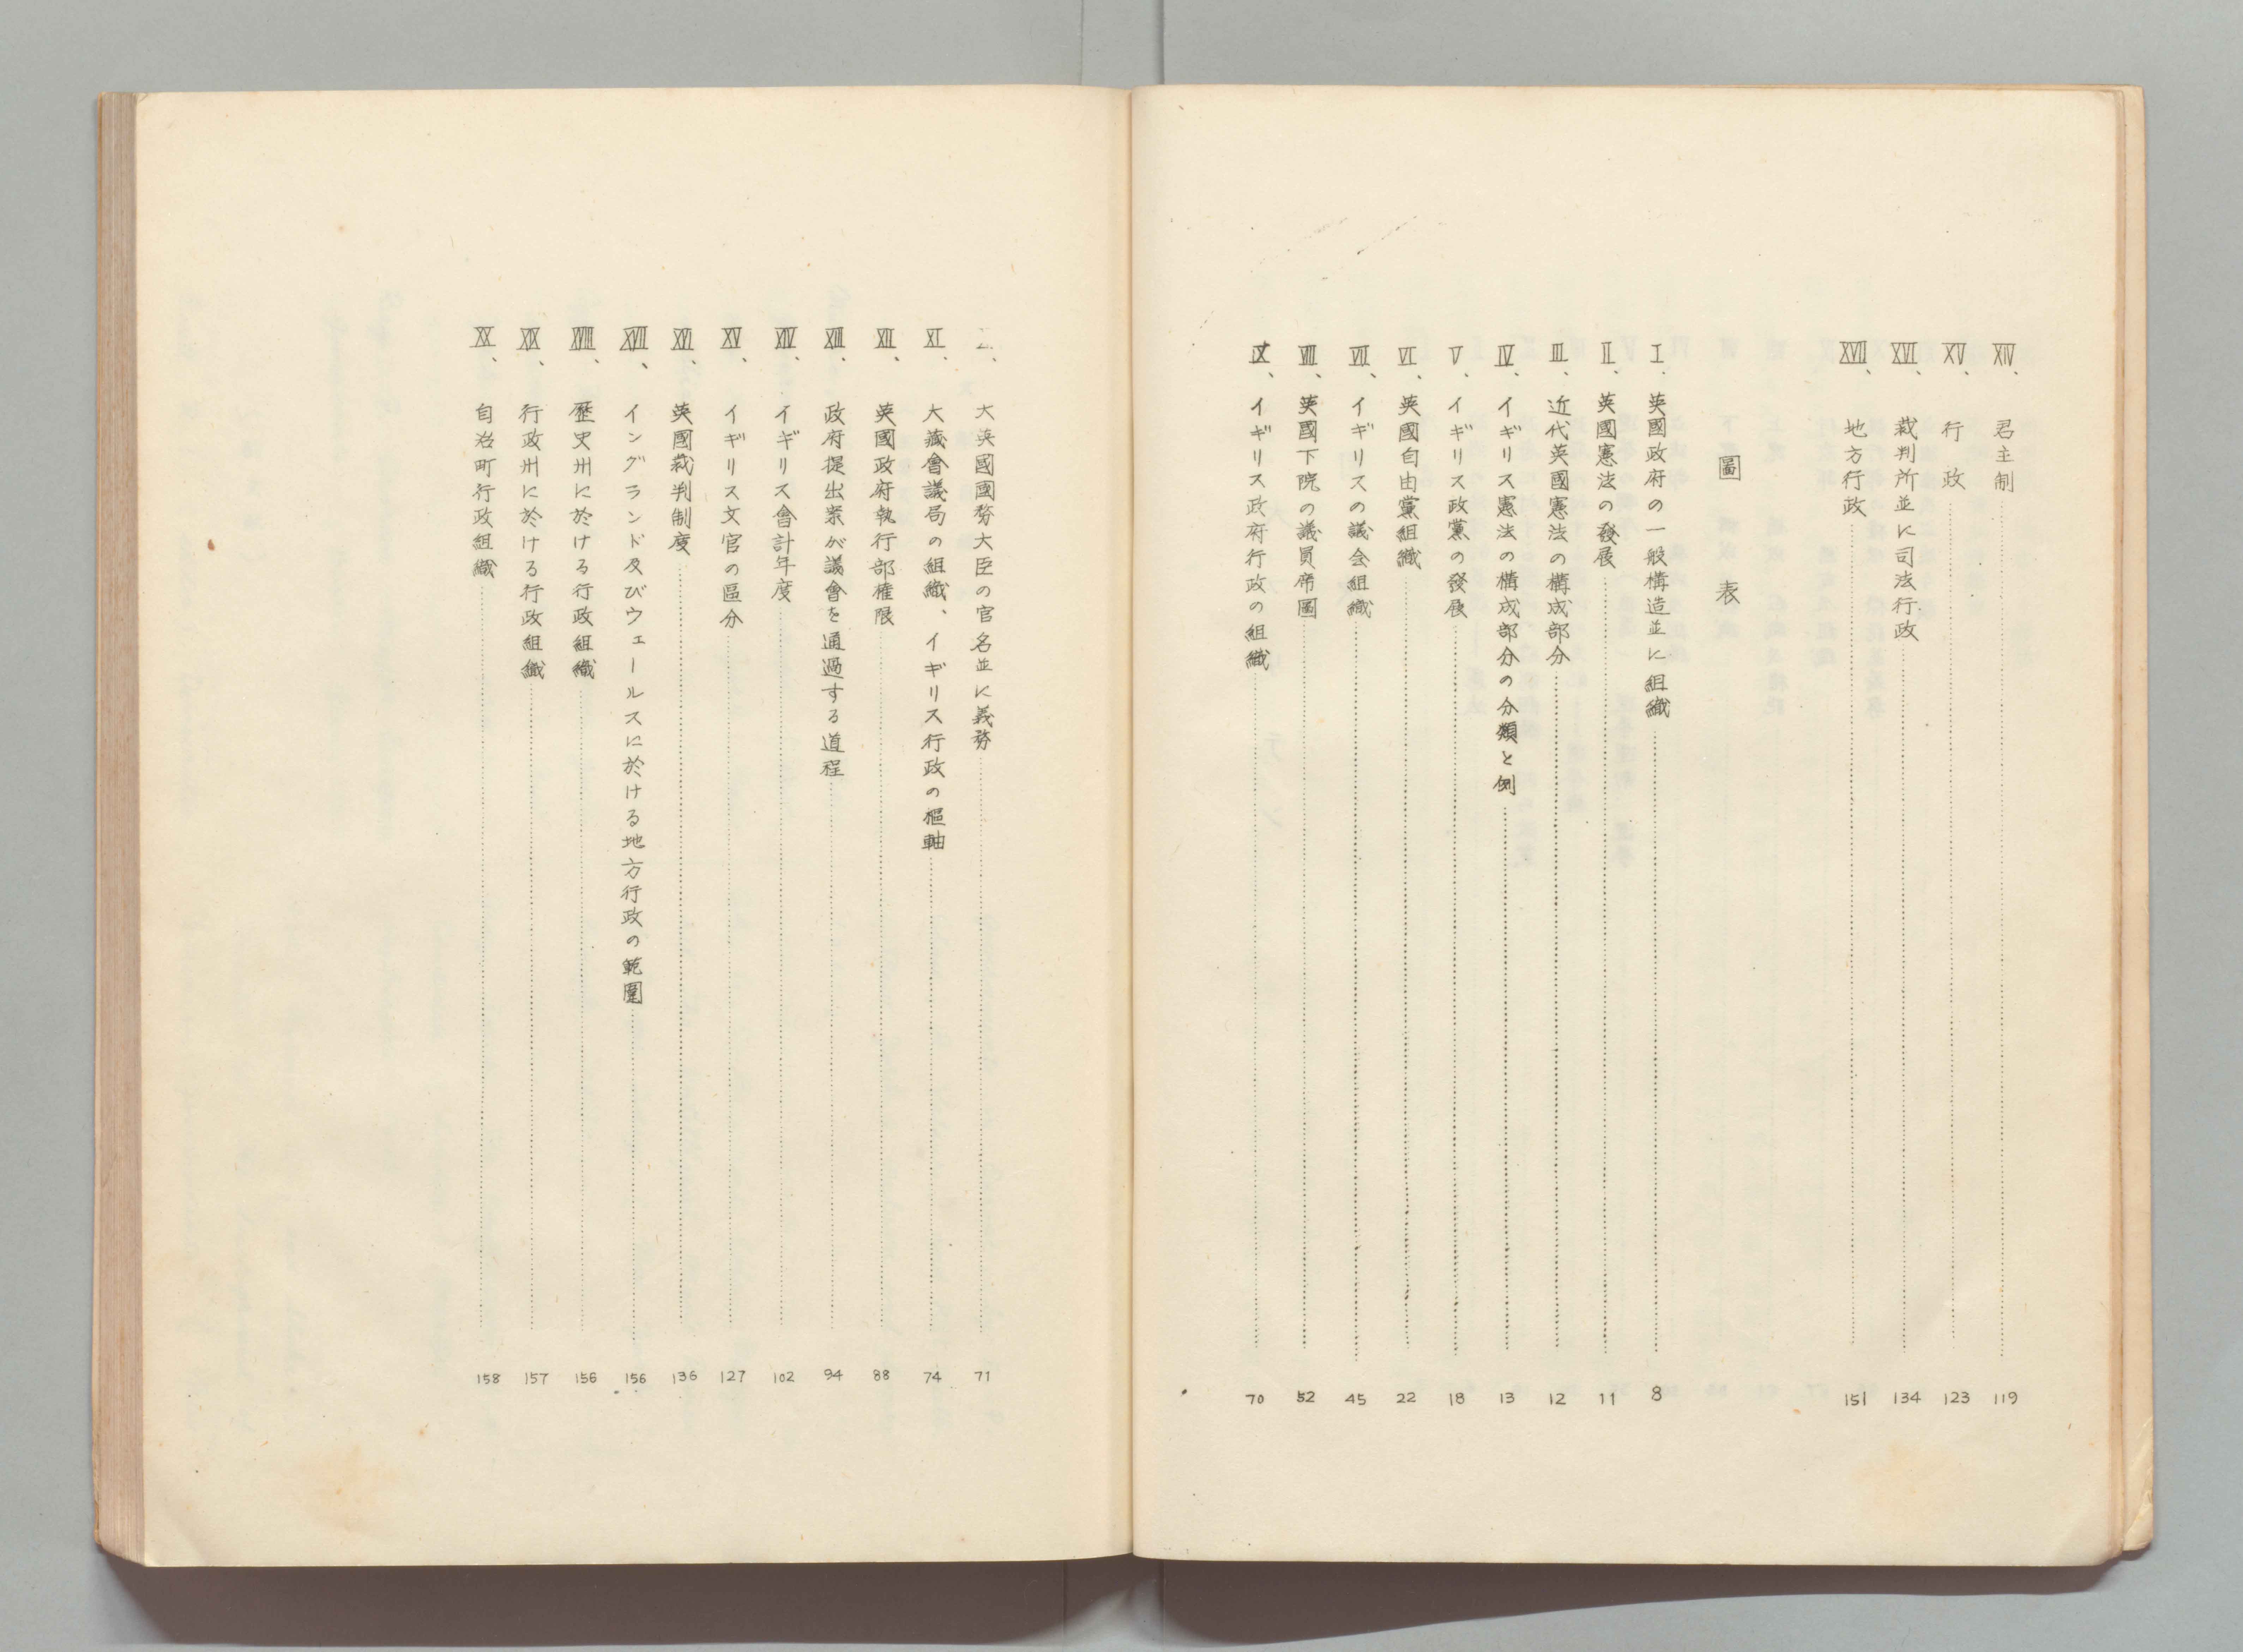 XIV、君主制 119
XV、行政 123
XVI、裁判所並に司法行政 134
XVII、地方行政 151
圖表
I、英國政府の一般構造並に組織 8
II、英國憲法の發展 11
III、近代英國憲法の構成部分 12
IV、イギリス憲法の構成部分の分類と例 13
V、イギリス政黨の發展 18
VI、英國自由黨組織 22
VII、イギリスの議会組織 45
VIII、英國下院の議員席圖 52
IX、イギリス政府行政の組織 70
、大英國國務大臣の官名並に義務 71
XI、大藏會議局の組織、イギリス行政の樞軸 74
XII、英國政府執行部権限 88
XIII、政府提出案が議會を通過する道程 94
XIV、イギリス會計年度 102
XV、イギリス文官の區分 127
XVI、英國裁判制度 136
XVII、イングランド及びウェールスに於ける地方行政の範圍 156
XVIII、歴史州に於ける行政組織 156
XIX、行政州に於ける行政組織 157
XX、自治町行政組織 158